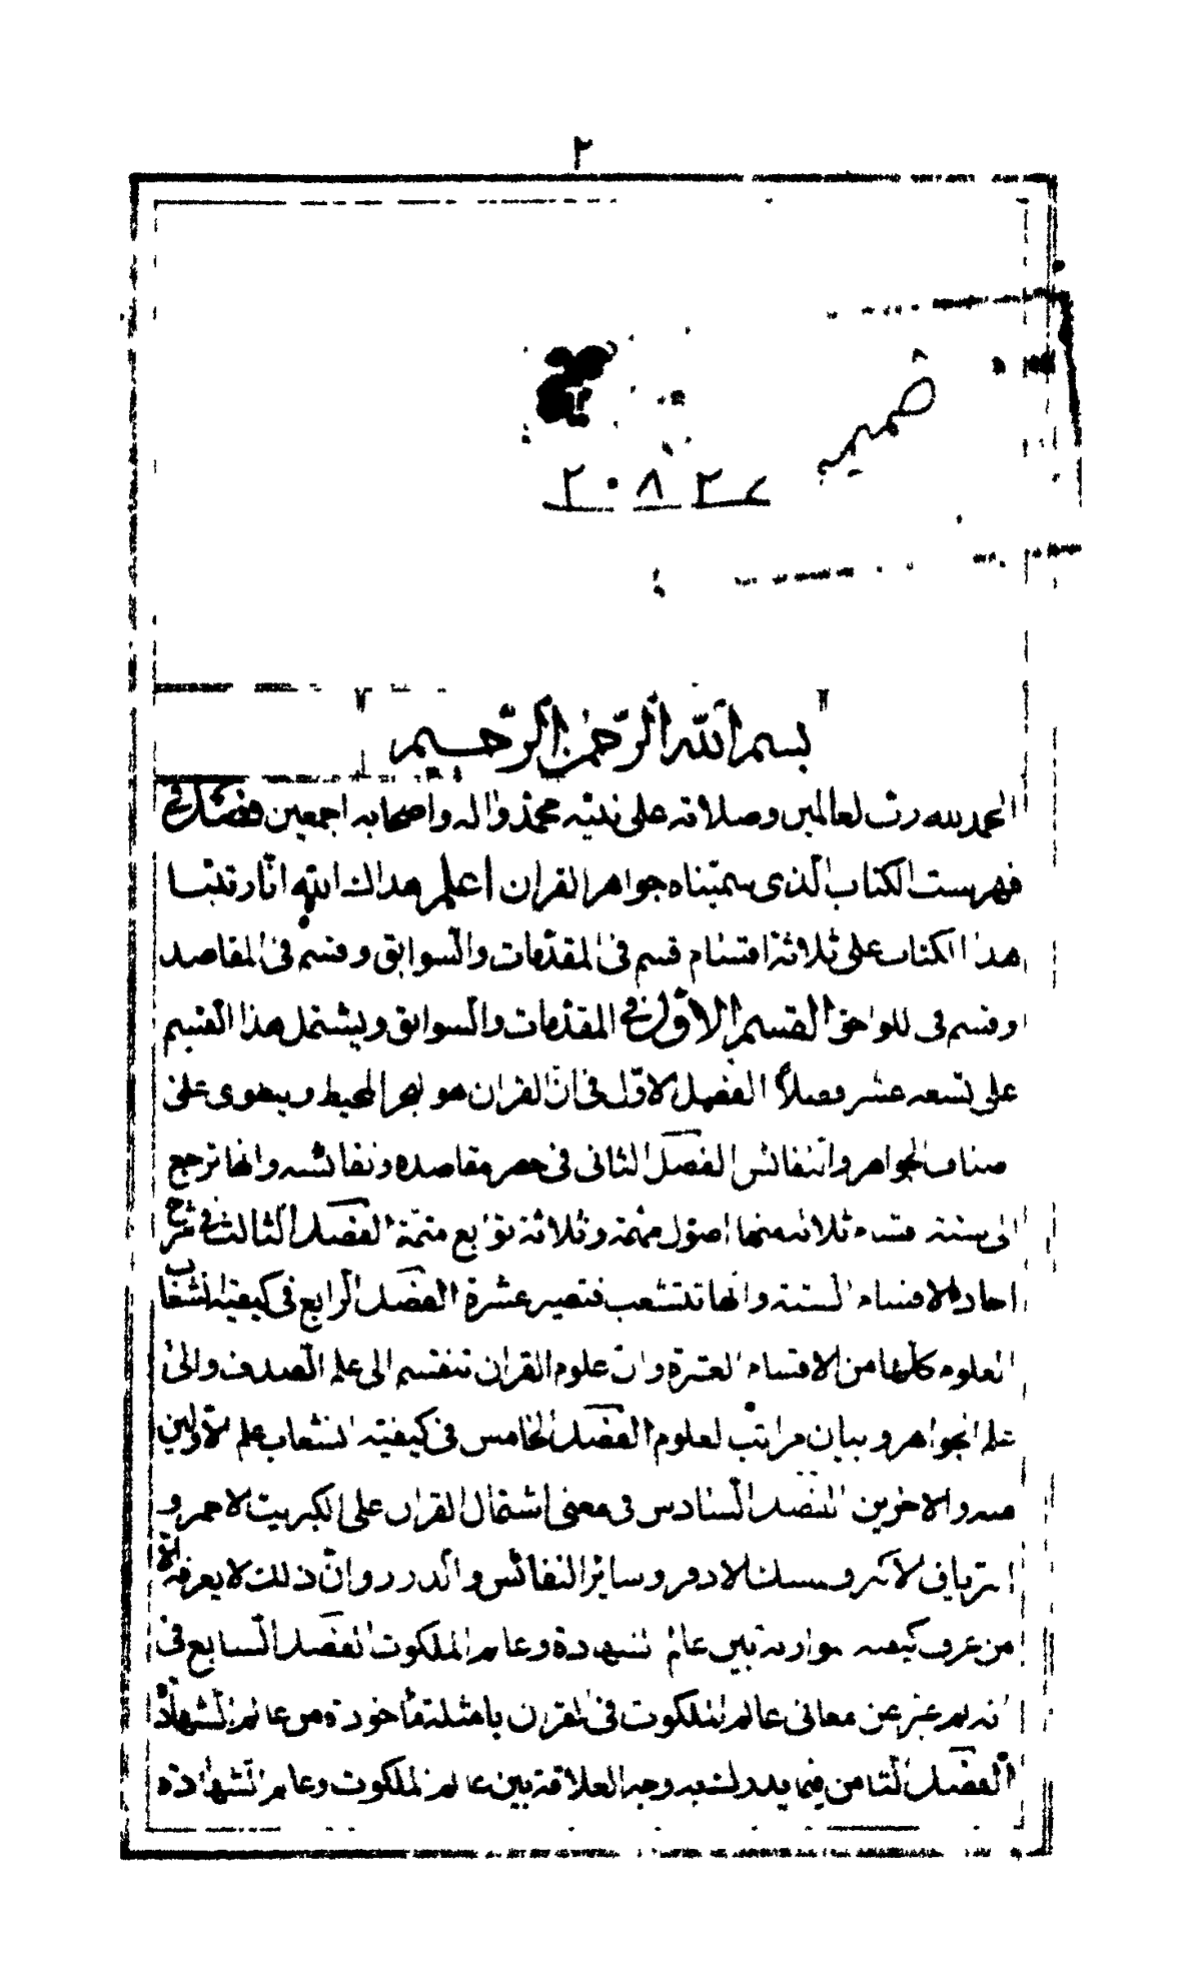 ٢
ضميمه
٢٠٨٢٧
بسم الله الرحمن الرحيم
الحمد لله رب العالمين وصلاته على نبيه محمد واله واصحابه اجمعين فصل في
فهرست الكتاب الذى سميناه جواهر القران اعلم هداك الله انا رتبنا
هذا الكتاب على ثلاثة اقسام قسم فى المقدمات والسوابق وقسم فى المقاصد
وقسم فى اللواحق القسم الاول في المقدمات والسوابق ويشتمل هذا القسم
على تسعه عشر فصلا الفصل الاول فى ان القران هو البحر المحيط وينطوى على
اصناف الجواهر والنفائس الفصل الثانى فى حصر مقاصده ونفائسه وانها ترجع
الى ستة اقسام ثلاثه منها اصول مهمة وثلاثة توابع متمة الفصل الثالث في شرح
احاد الاقسام الستة وانها تتشعب فتصير عشرة الفصل الرابع فى كيفية انشعاب
العلوم كلها من الاقسام العشرة وان علوم القران تنقسم الى علم الصدف والى
علم الجواهر وبيان مراتب العلوم الفصل الخامس فى كيفية انشعاب علم الاولين
منه والاخرين الفصل السادس فى معنى اشتمال القران على الكبريت الاحمر و
الترياق الاكبر والمسك الاذفر وسائر النفائس والدرر وان ذلك لا يعرفه الا
من عرف كيفية الموازنة بين عالم الشهادة وعالم الملكوت الفصل السابع فى
انه لم عبر عن معانى عالم الملكوت فى القران بامثلة مأخوذة من عالم الشهادة
الفصل الثامن فيما يدرك به وجه العلاقة بين عالم الملكوت وعالم الشهادة